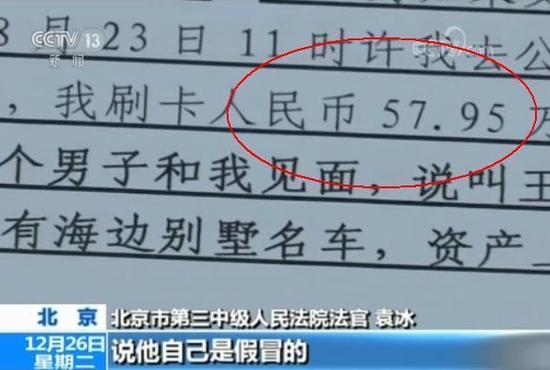 CCTV 13
新闻
8月23日11时许我去公
，我刷卡人民币57.95
个男子和我见面，说叫王
有海边别墅名车，资产
北京 北京市第三中级人民法院法官 袁冰
12月26日
星期二
说他自己是假冒的